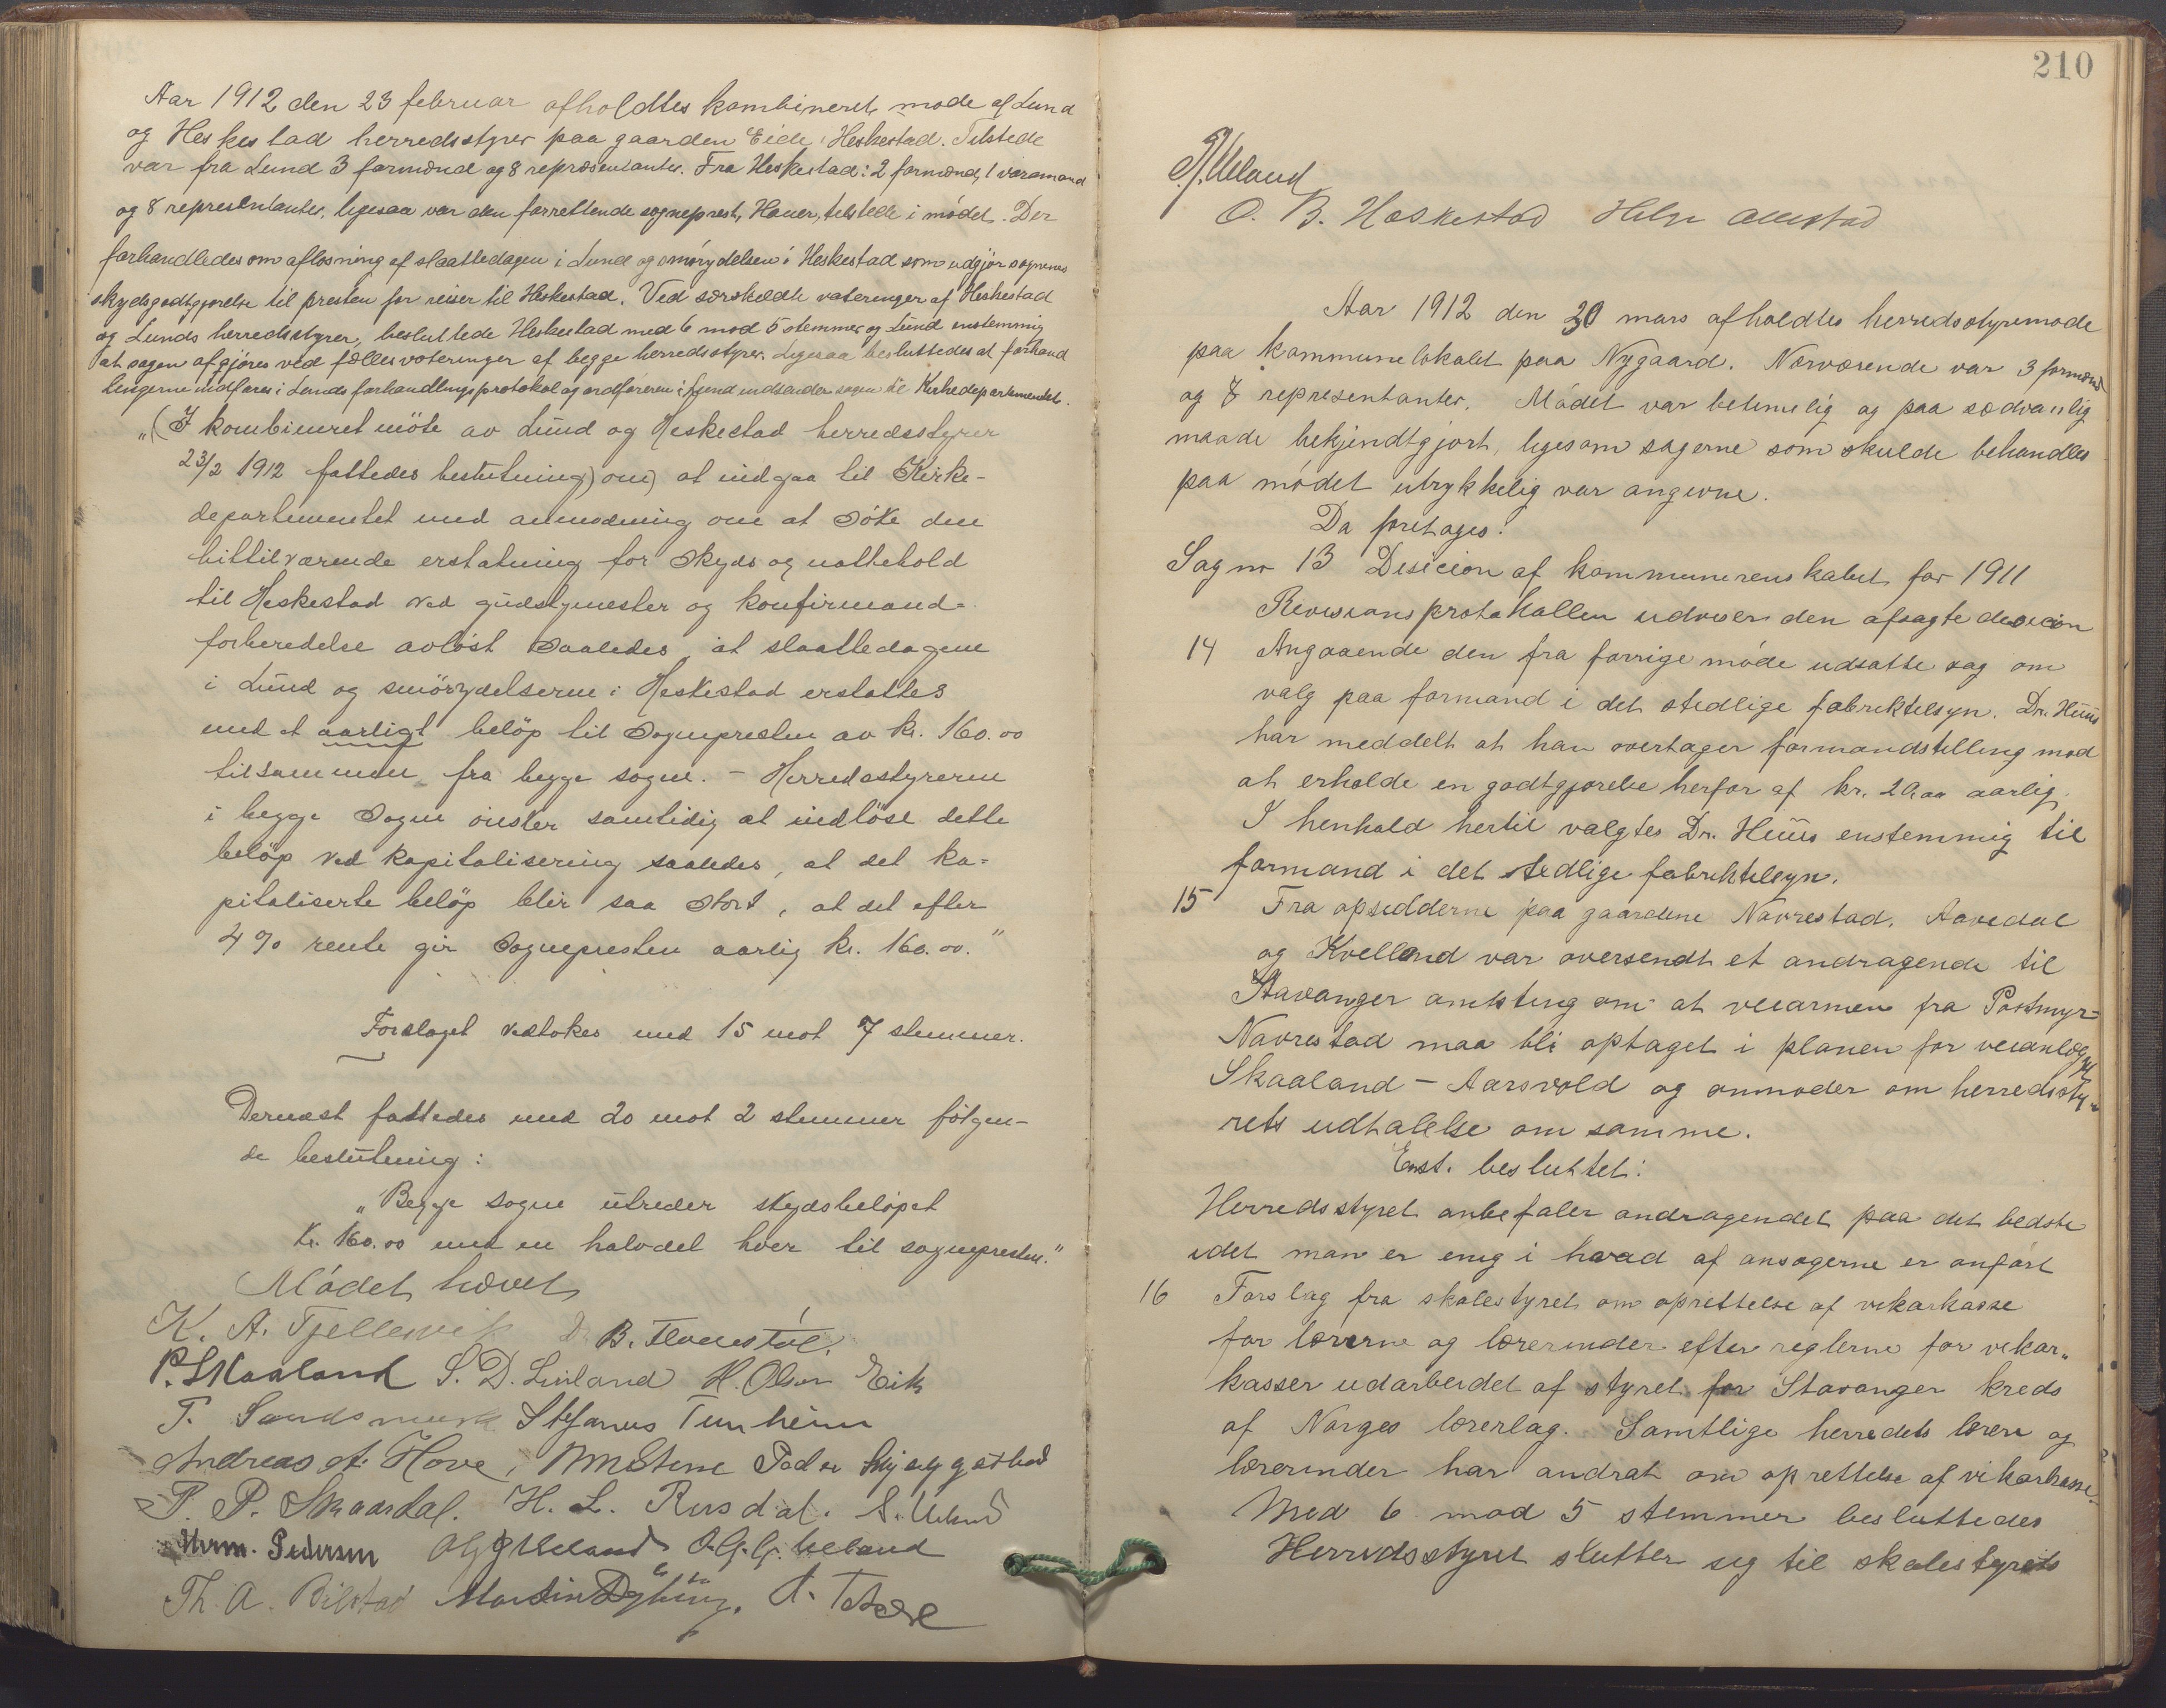 Aar 1912 den 23 februar afholdtes kombineret møde af Lund
og Heskestad herredsstyrer paa gaarden Eide, Heskestad. Tilstede
var fra Lund 3 formænd og 8 repræsentanter. Fra Heskestad: 2 formænd, 1 varamand
og 8 representanter, ligesaa var den forrettende sogneprest, Hauer, tilstede i mødet. Der
forhandledes om afløsning af slaattedagen i Lund og smørydelsen i Heskestad som udgjør sognenes
skydsgodtgjørelse til presten for reiser til Heskestad. Ved særskildte voteringer af Heskestad
og Lunds herredsstyrer, besluttede Heskestad med 6 mod 5 stemmer og Lund enstemmig
at sagen afgjøres ved fælles voteringer af begge herredsstyrer. Ligesaa besluttedes at forhand
lingerne indføres i Lunds forhandlingsprotokol og ordføreren i Lund indsender sagen til Kirkedepartementet.
"(I kombineret möte av Lund og Heskestad herredsstyrer
23/2 1912 fattedes beslutning) om) at indgaa til Kirke-
departementet med anmodning om at söke den
hittilværende erstatning for skyds og nattehold
til Heskestad ved gudstjenester og konfirmand-
forberedelse avlöst saaledes, at slaattedagene
i Lund og smörydelserne i Heskestad erstattes
med et aarligt belöp til Sognepresten av kr. 160.00
tilsammen fra begge sogne. - Herredsstyrerne
i begge Sogne önsker samtidig at indlöse dette
belöp ved kapitalisering saaledes, at det ka-
pitaliserte belöp blir saa stort, at det efter
4 % rente gir Sognepresten aarlig kr. 160.00."
Forslaget vedtokes med 15 mot 7 stemmer.
Dernæst fattedes med 20 mot 2 stemmer fölgen-
de beslutning:
"Begge sogne utreder skydsbelöpet
Kr. 160.00 med en halvdel hver til sognepresten."
Mødet hævet
K. A. Tjellesvik B.
P. Skaaland S. D. Liuland H. Olsen Eide
T. Sandsmark Stefanus Tunheim
Andreas A. Hove, Peder Skjeggestad
T. P. Skaardal. H. L. Rusdal. S. Ueland
Herm. Pedersen Ueland O. G. G. Ueland
Th. A. Bilstad Martin Dybing. A.
210
Ueland
O. B. Heskestad Helge Ollestad
Aar 1912 den 30 mars afholdtes herredsstyremøde
paa kommunelokalet paa Nygaard. Nærværende var 3 formænd
og 8 representanter. Mødet var betimelig og paa sædvanlig
maade bekjendtgjort, ligesom sagerne som skulde behandles
paa mødet utrykkelig var angivne.
Da foretages:
Sag no 13 Desicion af kommunerenskabet for 1911
Revisionsprotokollen udviser den afsagte desicion
14 Angaaende den fra forrige møde udsatte sag om
valg paa formand i det stedlige fabriktilsyn. Dr. Huus
har meddelt at han overtager formandstilling mod
at erholde en godtgjørelse herfor af kr. 20.00 aarlig.
I henhold hertil valgtes Dr. Huus enstemmig til
formand i det stedlige fabriktilsyn.
15 Fra opsidderne paa gaardene Navrestad, Aavedal
og Kvelland var oversendt et andragende til
Stavanger amtsting om at veiarmen fra Postmyr-
Navrestad maa bli optaget i planen for veianlæg
Skaaland - Aarsvold og anmoder om herredssty-
rets udtalelse om samme.
Enst. besluttet:
Herredsstyret anbefaler andragendet paa det bedste
idet man er enig i hvad af ansøgerne er anført
16 Forslag fra skolestyret om oprettelse af vikarkasse
for lærerne og lærerinder efter reglerne for vikar-
kasser udarbeidet af styret for Stavanger kreds
af Norges lærerlag. Samtlige herredets lærere og
lærerinder har andrat om oprettelse af vikarkasse.
Med 6 mod 5 stemmer besluttedes
Herredsstyret slutter sig til skolestyrets